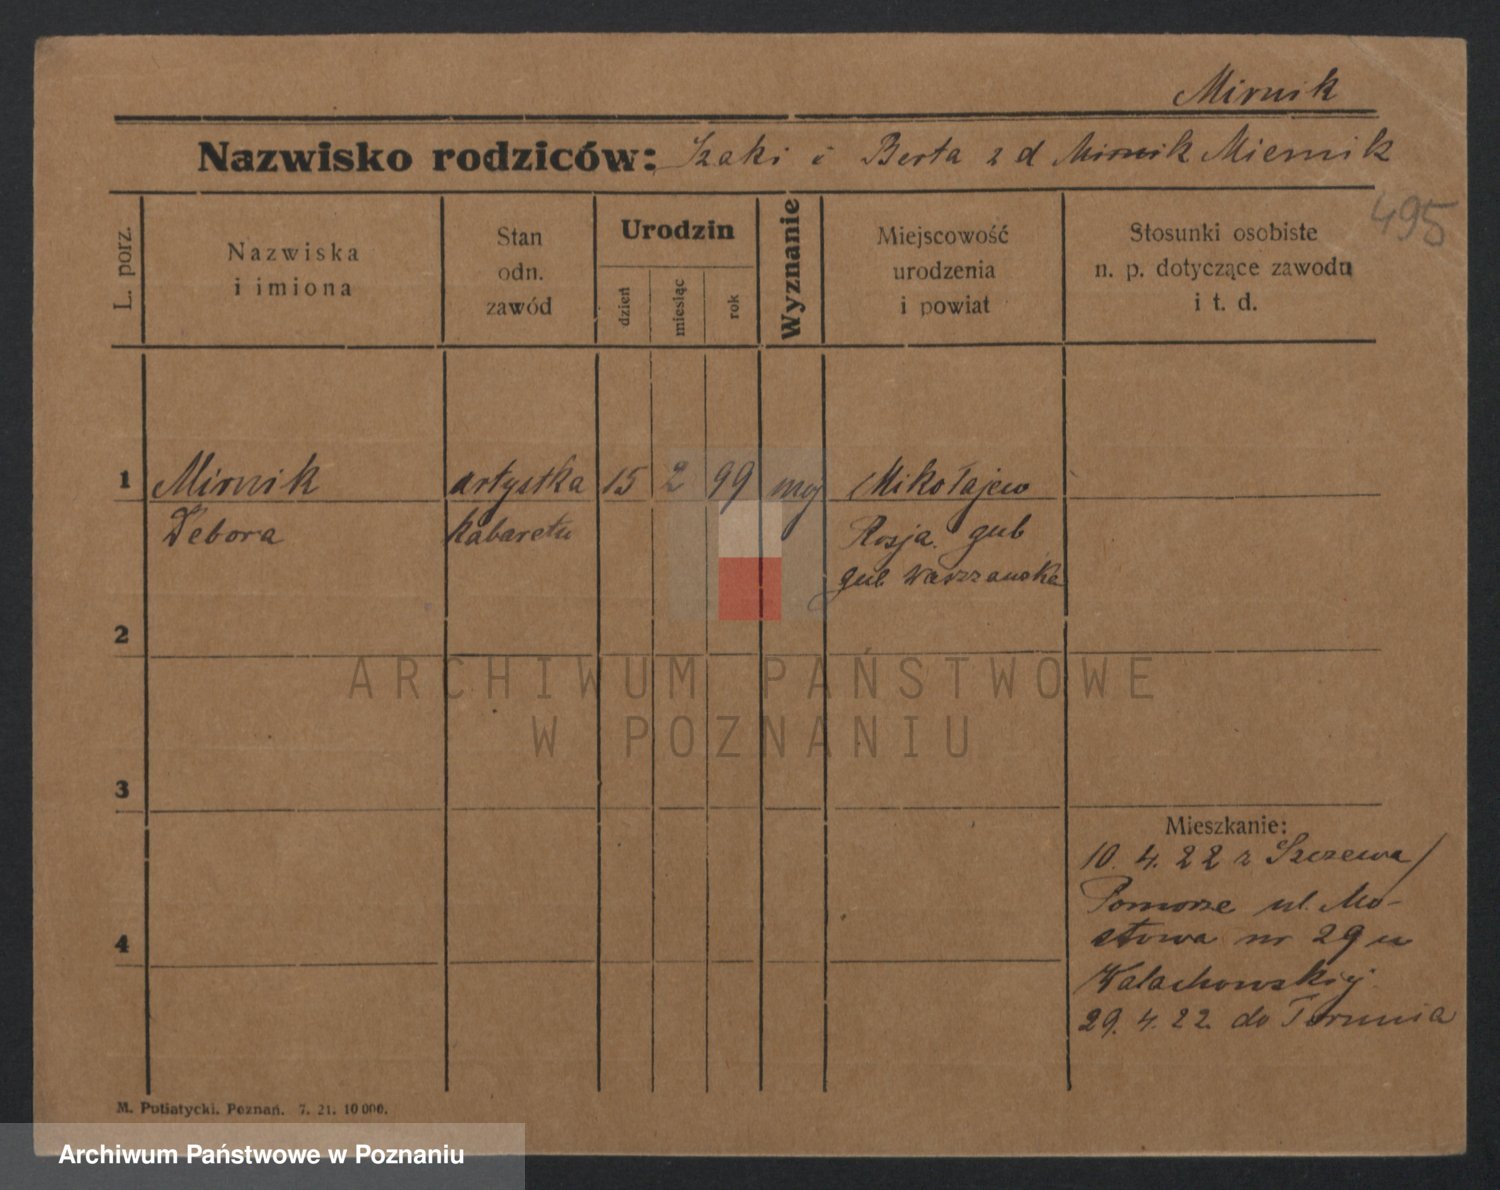 Mirnik
Nazwisko rodziców: Szaki i Berta z d Mirnik Miernik
495
L. porz.
Nazwiska
i imiona
Stan
odn.
zawód
Urodzin
dzień
miesiąc
rok
Wyznanie
Miejscowość
urodzenia
i powiat
Stosunki osobiste
n. p. dotyczące zawodu
i t. d.
1 Mirnik artystka 15 2 99 moj Mikołajew
Debora kabaretu Rosja. gub
gub Warszawska
2
ARCHIWUM PAŃSTWOWE
W POZNANIU
3
Mieszkanie:
10. 4. 22 z Szczewa/
Pomorze ul. Mo-
4
stowa nr 29 u
Walachowskiej
29. 4. 22. do Torunia
M. Putiatycki. Poznań. 7. 21. 10 000.
Archiwum Państwowe w Poznaniu